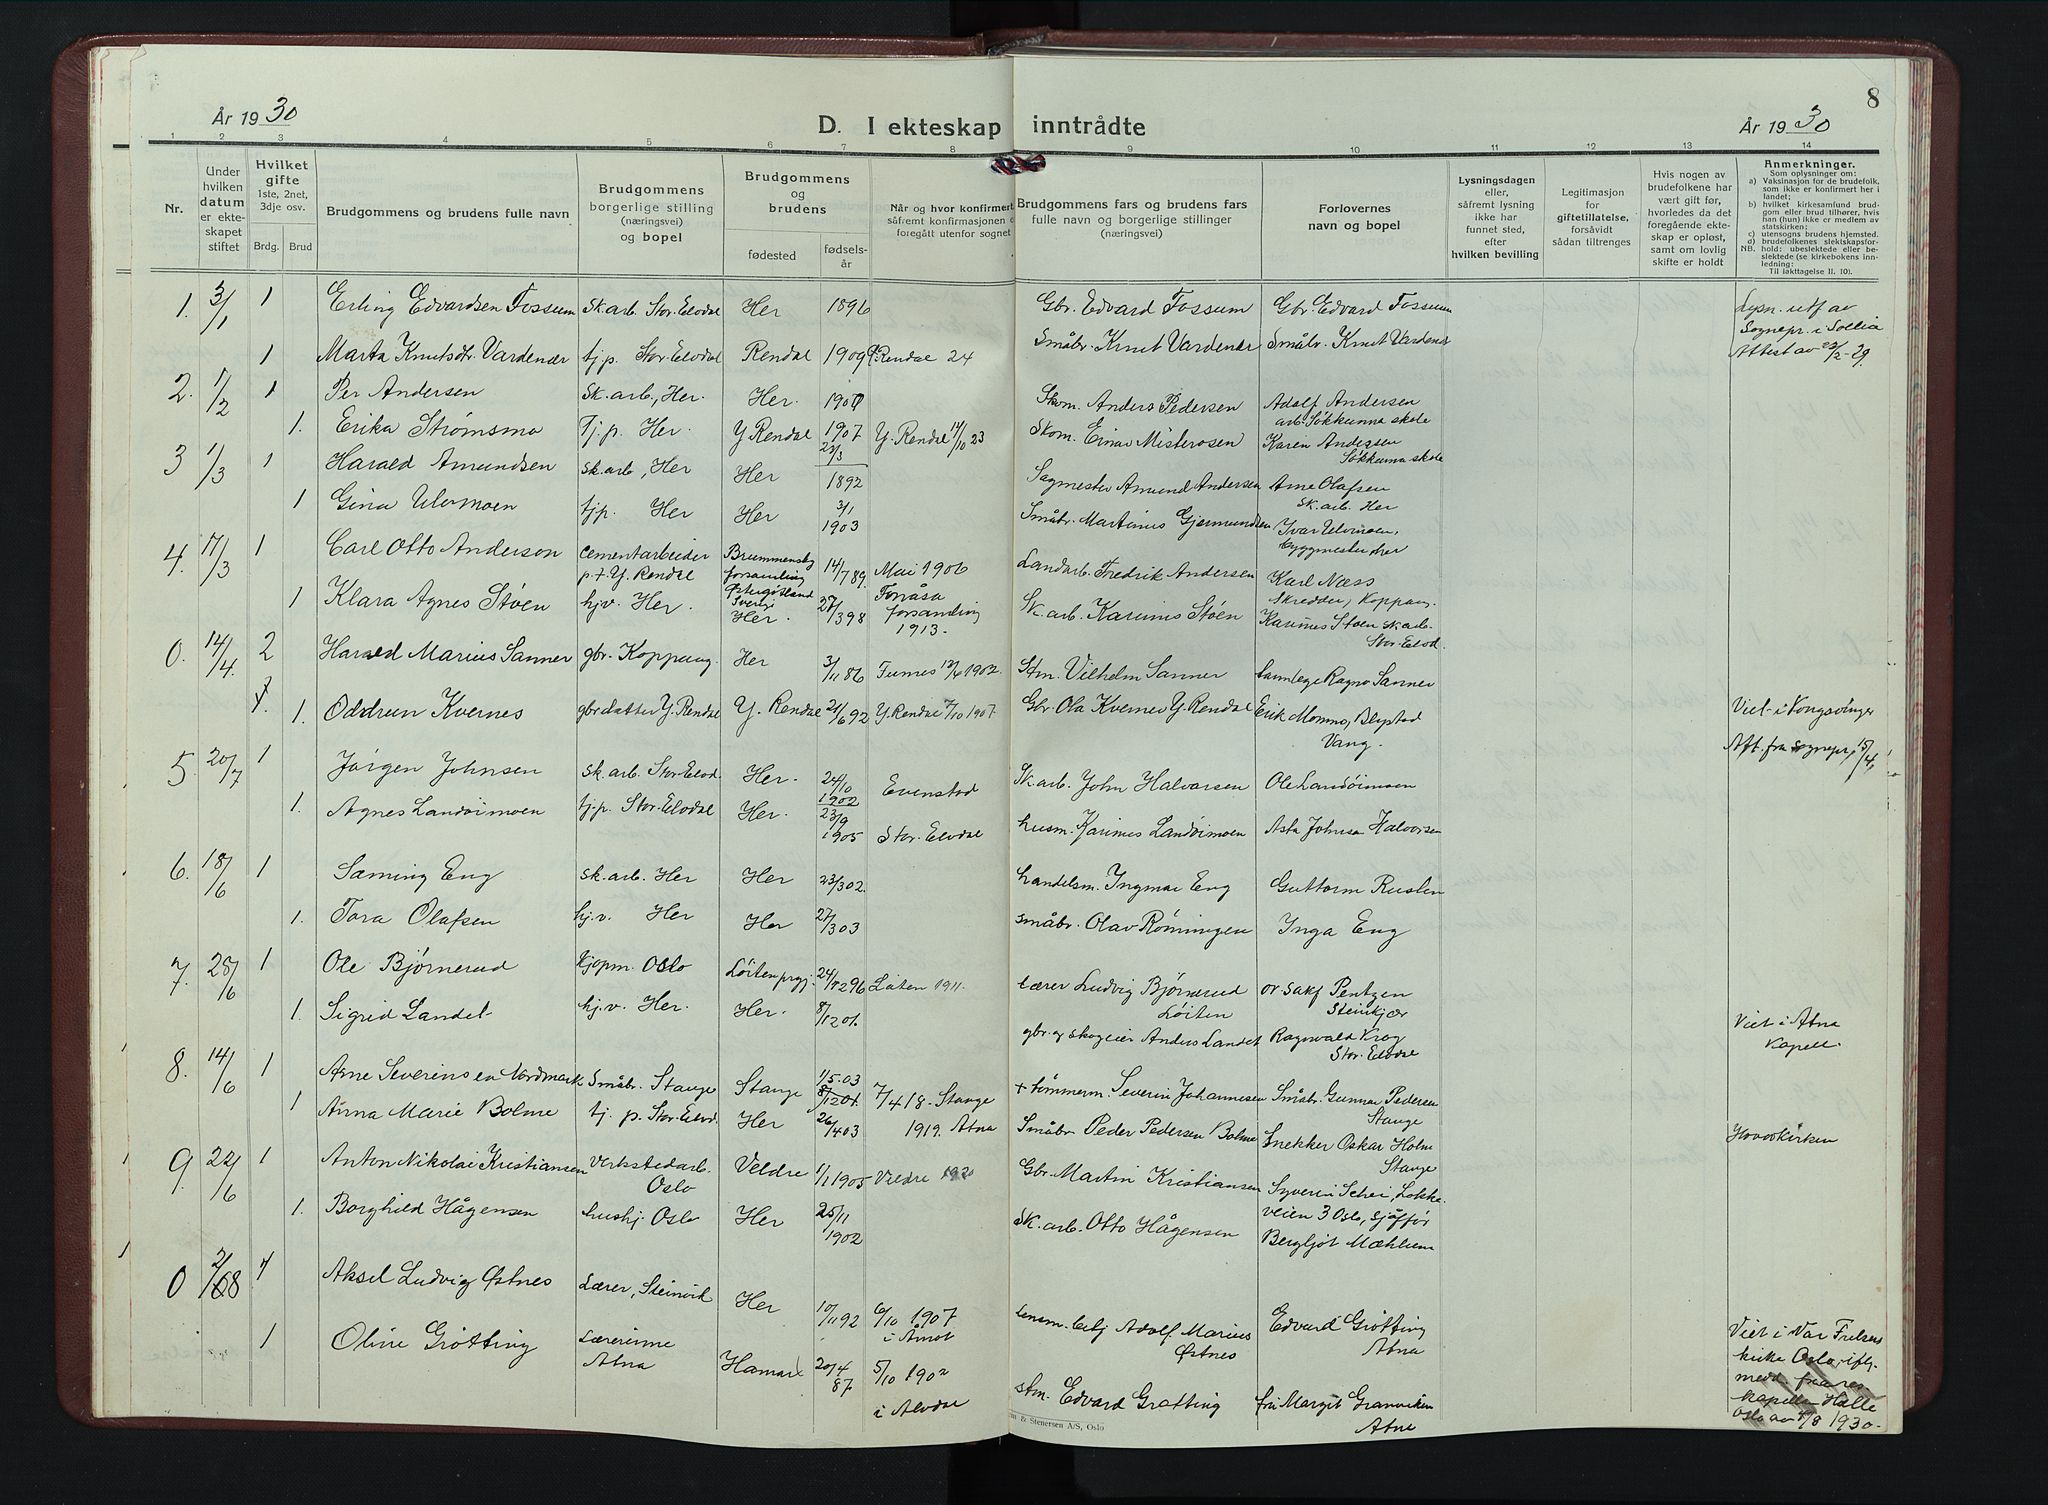 År 1930
D. I ekteskap inntrådte
8
År 1930
1 2 3 4 5 6 7 8 9 10 11 12 13 14
Nr.
Under hvilken datum er ekteskapet stiftet
Hvilket gifte 1ste, 2net, 3dje osv.
Brdg. Brud
Brudgommens og brudens fulle navn
Brudgommens borgerlige stilling (næringsvei) og bopel
Brudgommens og brudens
fødested
fødselsår
Når og hvor konfirmert
såfremt konfirmasjonen
foregått utenfor sognet
Brudgommens fars og brudens fars fulle navn og borgerlige stillinger (næringsvei)
Forlovernes navn og bopel
Lysningsdagen eller, såfremt lysning ikke har funnet sted, efter hvilken bevilling
Legitimasjon for giftetillatelse, forsåvidt sådan tiltrenges
Hvis nogen av brudefolkene har vært gift før, hvorledes da det foregående ekteskap er opløst, samt om lovlig skifte er holdt
Anmerkninger.
Som oplysninger om:
a) Vaksinasjon for de brudefolk, som ikke er konfirmert her i landet;
b) hvilket kirkesamfund brudgom eller brud tilhører, hvis han (hun) ikke er medlem av statskirken;
c) utensogns brudens hjemsted.
d) brudefolkenes slektskapsforhold: ubeslektede eller beslektede (se kirkebokens innledning:
NB.
Til iakttagelse II. 10).
1. 3/1 1 Erling Edvardsen Fossum Sk.arb. Stor-Elvdal Her 1896 Gbr. Edvard Fossum Gbr. Edvard Fossum Lysn. utf av Sognepr. i Sollia
1 Marta Knutsdtr. Vardenær tj.p. Stor-Elvdal Rendal 1909 Rendal 24 Småbr. Knut Vardenær Småbr. Knut Vardenær Attest av 23/2-29.
2. 1/2 1 Per Andersen Sk.arb., Her. Her. Skom. Anders Pedersen Adolf Andersen arb. Søkkunna skole
1. Erika Strømsmo Tj.p. Her. Y. Rendal 1907 Y. Rendal 14/10 23 Skom. Einar Misterosen Karen Andersen Søkkunna skole
3 1/3 1 Harald Amundsen Sk.arb, Her Her 23/3 1892 Sagmester Amund Andersen Arne Olafsen Sk.arb. Her
1 Gina Ulvmoen tjp. Her Her 3/1 1903 Småbr. Martinus Gjermundsen Ivar Ulvmoen, byggmester, her
4. 17/3 1 Carl Otto Anderson Cementarbeider p.t. Y. Rendal forsamling Østergøtland Sverige 14/7 89. Mai 1906 forsamling Landarb. Fredrik Andersen Karl Næss Skredder, Koppang.
1 Klara Agnes Støen hjv. Her. Her. 27/3 98 1913. Sk.arb. Karinus Støen Karinus Støen sk.arb. Stor-Elvd.
0. 14/4. 2 Harald Marius Sanner gbr. Koppang. Her 3/11 86 Furnes 12/4 1902. Stm. Vilhelm Sanner tannlege Ragna Sanner
1. Oddrun Kvernes gbr datter Y. Rendal Y. Rendal 21/6 92 Y. Rendal 7/10 1907 Gbr. Ola Kvernes Y. Rendal Erik Momms, Blystad Vang. Viet i Kongsvinger Att. fra sognepr. 15/4,
5. 20/7 1 Jørgen Johnsen Sk.arb. Stor-Elvd. Her. 24/10 1902 Evenstad Sk.arb. John Halvorsen Ole Landøimoen
1. Agnes Landøimoen tj.p. Stor-Elvdal Her. 23/9 1905 Stor-Elvdal husm. Karinus Landøimoen Asta Johnsen Halvorsen
6. 18/6 1 Sæming Eng Sk.arb. Her Her 23/3 02. handelsm. Ingmar Eng Guttorm Ruslen
1. Tora Olafsen hj.v. Her Her 27/3 03 småbr. Olav Rønningen Inga Eng
7. 28/6 1 Ole Bjørnerud kjøpm. Oslo Løiten prgj. Løten 1911. Lærer Ludvig Bjørnerud Løiten or.sakf Pentzen Steinkjær
1. Sigrid Landet hj.v. Her. Her. 8/12 01. gbr. og skogeier Anders Landet Ragnvald Krog Stor-Elvdal Viet i Atna Kapell.
8. 14/6 1 Arne Severinsen Nordmark Småbr. Stange Stange 1/5.03 7/4 18. Stange + tømmerm. Severin Johannesen Småbr. Gunnar Pedersen Stange
1 Anna Marie Bolme tj. p. Stor-Elvd. Her 26/4 03 1919. Atna Småbr. Peder Pedersen Bolme Snekker Oskar Holm Stange Hovedkirken
9. 22/6 1 Anton Nikolai Kristiansen Verkstedarb. Oslo Veldre 1/1 1905 Veldre 1920 Gbr. Martin Kristiansen Syverin Schei, Løkkeveien 3 Oslo, sjåfør
1. Borghild Hågensen hushj. Oslo Her 25/11 1902 Sk.arb. Otto Hågensen Bergljot Mæhlum
0 Aksel Ludvig Østnes Lærer, Steinvik Her 10/11 92 6/10 1907 i Åmot Lensm. Adolf Marius Østnes Edvard Grøtting Atna
1 Oline Grøtting Lærerinne Atna Hamar 20/4 87 5/10 1902 i Alvdal stm. Edvard Grøtting frk Margit Granviken Atna
Viet i Vår Frelsers kirke Oslo, ifly. kapellan Halle Oslo av 4/8 1930.
& Stenersen A/S, Oslo